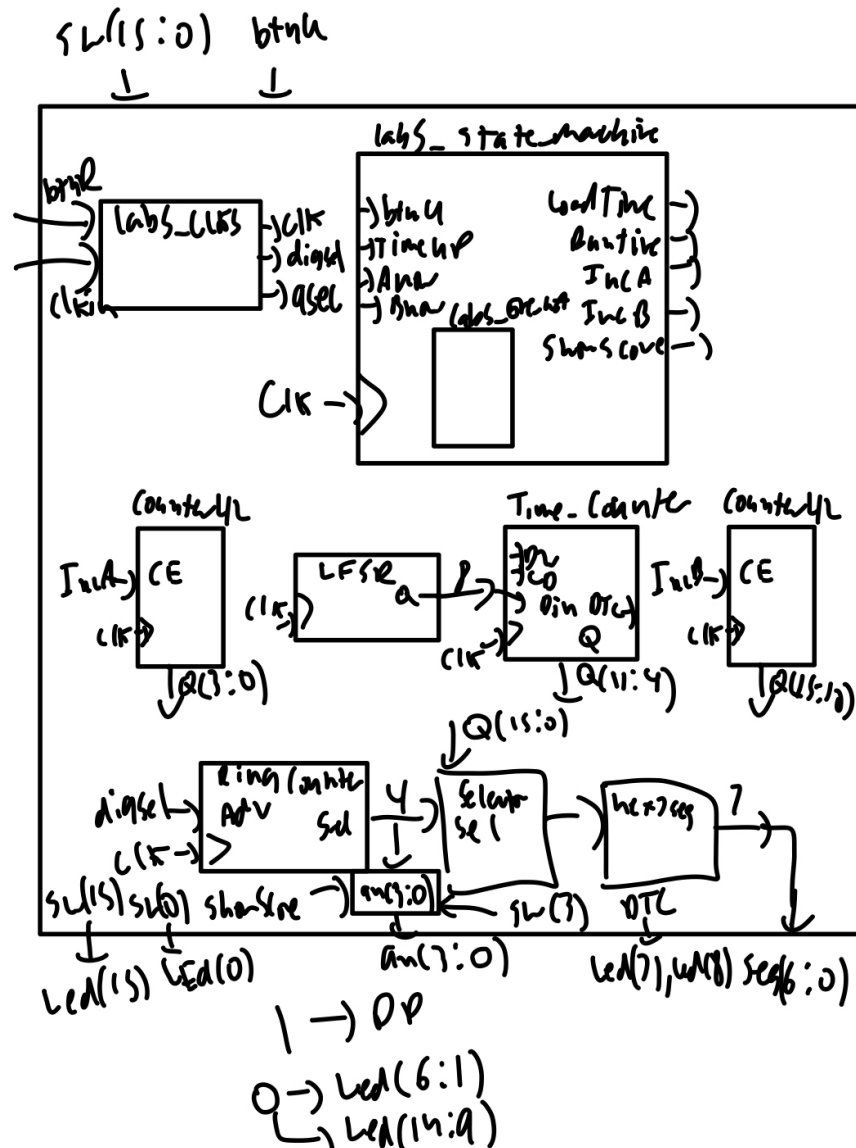 sw(15:0) btnU
lab5_state_machine
btnR
lab5_clks
clkin
clk
digsel
qsec
btnU
TimeUP
Clk
LoadTime
RunTime
IncA
IncB
ShowScore
IncA
CE
clk
Q(3:0)
LFSR
Q
clk
8
Time_Counter
LD
Din DTC
Q
clk
Q(11:4)
IncB
CE
clk
Q(15:12)
digsel
clk
Ring Counter
Adv
Sel
4
Q(15:0)
Selector
Sel
hex7seg
7
sw(15) sw(0) showScore
an(3:0)
sw(3)
DTC
Led(15) LEd(0) an(3:0) led(7), led(8) seg(6:0)
1 → DP
0 → Led(6:1)
Led(14:9)